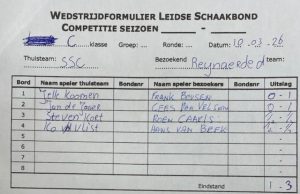 WEDSTRIJDFORMULIER LEIDSE SCHAAKBOND
COMPETITIE SEIZOEN _______ - _______
C klasse Groep: ... Ronde: ... Datum: 10-03-26
Thuisteam: SSC Bezoekend team: Reynaerde d
Bord Naam speler thuisteam Bondsnr Naam speler bezoekers Bondsnr Uitslag
1 Jelle Koomen FRANK BEUSEN 0 - 1
2 Jan de CEES VAN VELZEN 0 - 1
3 Steven Koet ROEN CAARLS ½ - ½
4 Ko vd Vlist HANS VAN BEEK ½ - ½
5 -
6 -
7 -
8 -
Eindstand 1 - 3